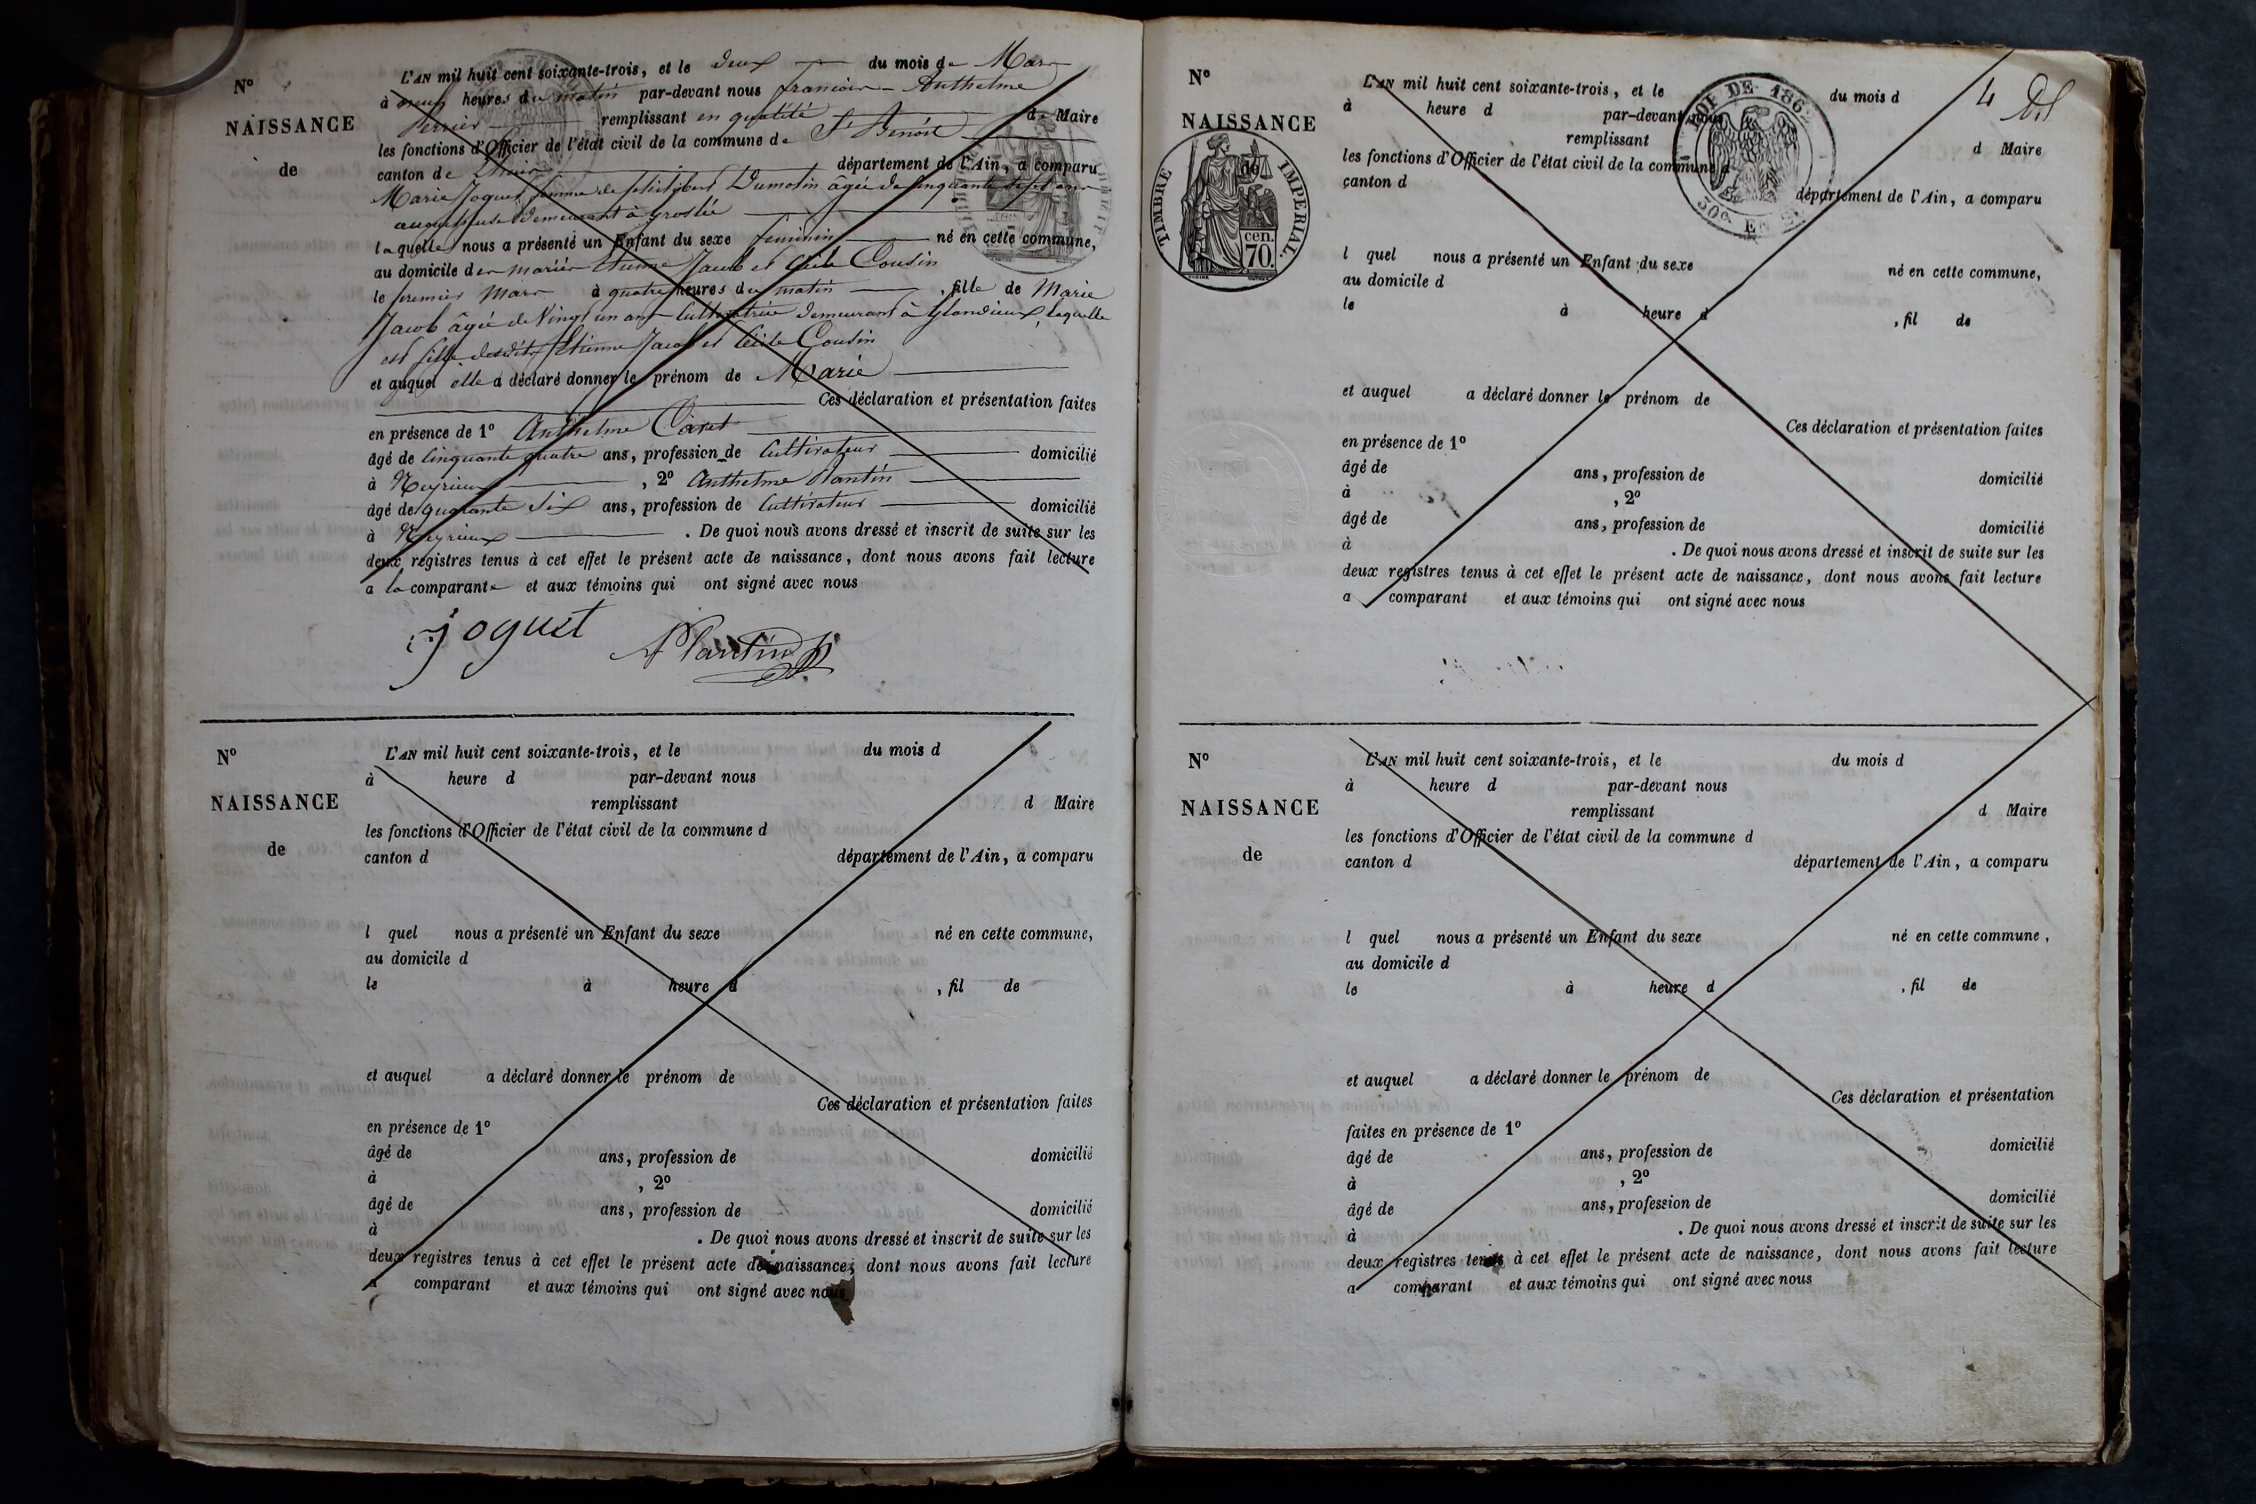 N°
NAISSANCE
de
L'AN mil huit cent soixante-trois, et le deux du mois de Mars
à onze heures du matin par-devant nous françois Anthelme
Perrier remplissant en qualité de Maire
les fonctions d'Officier de l'état civil de la commune de St Benoit
canton de Lhuis département de l'Ain, a comparu
Marie Joguet femme de Dumolin âgée de cinquante sept ans
demeurant à Groslée
laquelle nous a présenté un Enfant du sexe feminin né en cette commune,
au domicile des mariés Etienne Jacob et Cécile Cousin
le premier Mars à quatre heures du matin, fille de Marie
Jacob âgée de Vingt un ans Cultivatrice demeurant à Glandieux, laquelle
est fille desdits Etienne Jacob et Cécile Cousin
et auquel elle a déclaré donner le prénom de Marie
Ces déclaration et présentation faites
en présence de 1° Anthelme
âgé de Cinquante quatre ans, profession de Cultivateur domicilié
à Neyrieux, 2° Anthelme Plantin
âgé de quarante Six ans, profession de Cultivateur domicilié
à Neyrieux. De quoi nous avons dressé et inscrit de suite sur les
deux registres tenus à cet effet le présent acte de naissance, dont nous avons fait lecture
a la comparante et aux témoins qui ont signé avec nous
joguet
Plantin
N°
NAISSANCE
de
L'AN mil huit cent soixante-trois, et le du mois d
à heure d par-devant nous
remplissant d Maire
les fonctions d'Officier de l'état civil de la commune d
canton d département de l'Ain, a comparu
l quel nous a présenté un Enfant du sexe né en cette commune,
au domicile d
le à heure d , fil de
et auquel a déclaré donner le prénom de
Ces déclaration et présentation faites
en présence de 1°
âgé de ans, profession de domicilié
à , 2°
âgé de ans, profession de domicilié
à . De quoi nous avons dressé et inscrit de suite sur les
deux registres tenus à cet effet le présent acte de naissance, dont nous avons fait lecture
a comparant et aux témoins qui ont signé avec nous
4
N°
NAISSANCE
de
TIMBRE IMPERIAL.
cen.
70
DE 186
50c
L'AN mil huit cent soixante-trois, et le du mois d
à heure d par-devant nous
remplissant d Maire
les fonctions d'Officier de l'état civil de la commune d
canton d département de l'Ain, a comparu
l quel nous a présenté un Enfant du sexe né en cette commune,
au domicile d
le à heure d , fil de
et auquel a déclaré donner le prénom de
Ces déclaration et présentation faites
en présence de 1°
âgé de ans, profession de domicilié
à , 2°
âgé de ans, profession de domicilié
à . De quoi nous avons dressé et inscrit de suite sur les
deux registres tenus à cet effet le présent acte de naissance, dont nous avons fait lecture
a comparant et aux témoins qui ont signé avec nous
N°
NAISSANCE
de
L'AN mil huit cent soixante-trois, et le du mois d
à heure d par-devant nous
remplissant d Maire
les fonctions d'Officier de l'état civil de la commune d
canton d département de l'Ain, a comparu
l quel nous a présenté un Enfant du sexe né en cette commune,
au domicile d
le à heure d , fil de
et auquel a déclaré donner le prénom de
Ces déclaration et présentation
faites en présence de 1°
âgé de ans, profession de domicilié
à , 2°
âgé de ans, profession de domicilié
à . De quoi nous avons dressé et inscrit de suite sur les
deux registres tenus à cet effet le présent acte de naissance, dont nous avons fait lecture
a comparant et aux témoins qui ont signé avec nous